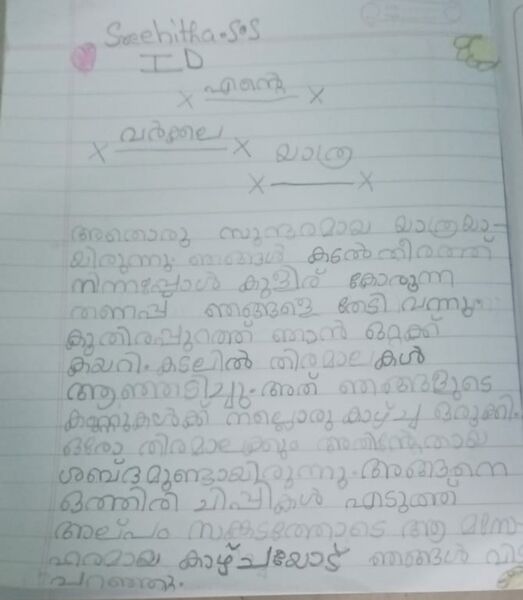 Sreehitha.S.S
I D
എന്റെ
വർക്കല
യാത്ര
അതൊരു സുന്ദരമായ യാത്രയാ-
യിരുന്നു. ഞങ്ങൾ കടൽതീരത്ത്
നിന്നപ്പോൾ കുളിര് കോരുന്ന
തണുപ്പ് ഞങ്ങളെ തേടി വന്നു.
കുതിരപ്പുറത്ത് ഞാൻ ഒറ്റക്ക്
കയറി. കടലിൽ തിരമാലകൾ
ആഞ്ഞടിച്ചു. അത് ഞങ്ങളുടെ
കണ്ണുകൾക്ക് നല്ലൊരു കാഴ്ച്ച ഒരുക്കി.
ഒരോ തിരമാലക്കും അതിന്റേതായ
ശബ്ദമുണ്ടായിരുന്നു. അങ്ങനെ
ഒത്തിരി ചിപ്പികൾ എടുത്ത്
അല്പം സങ്കടത്തോടെ ആ മനോ
ഹരമായ കാഴ്ച്ചയോട് ഞങ്ങൾ വിട
പറഞ്ഞു.